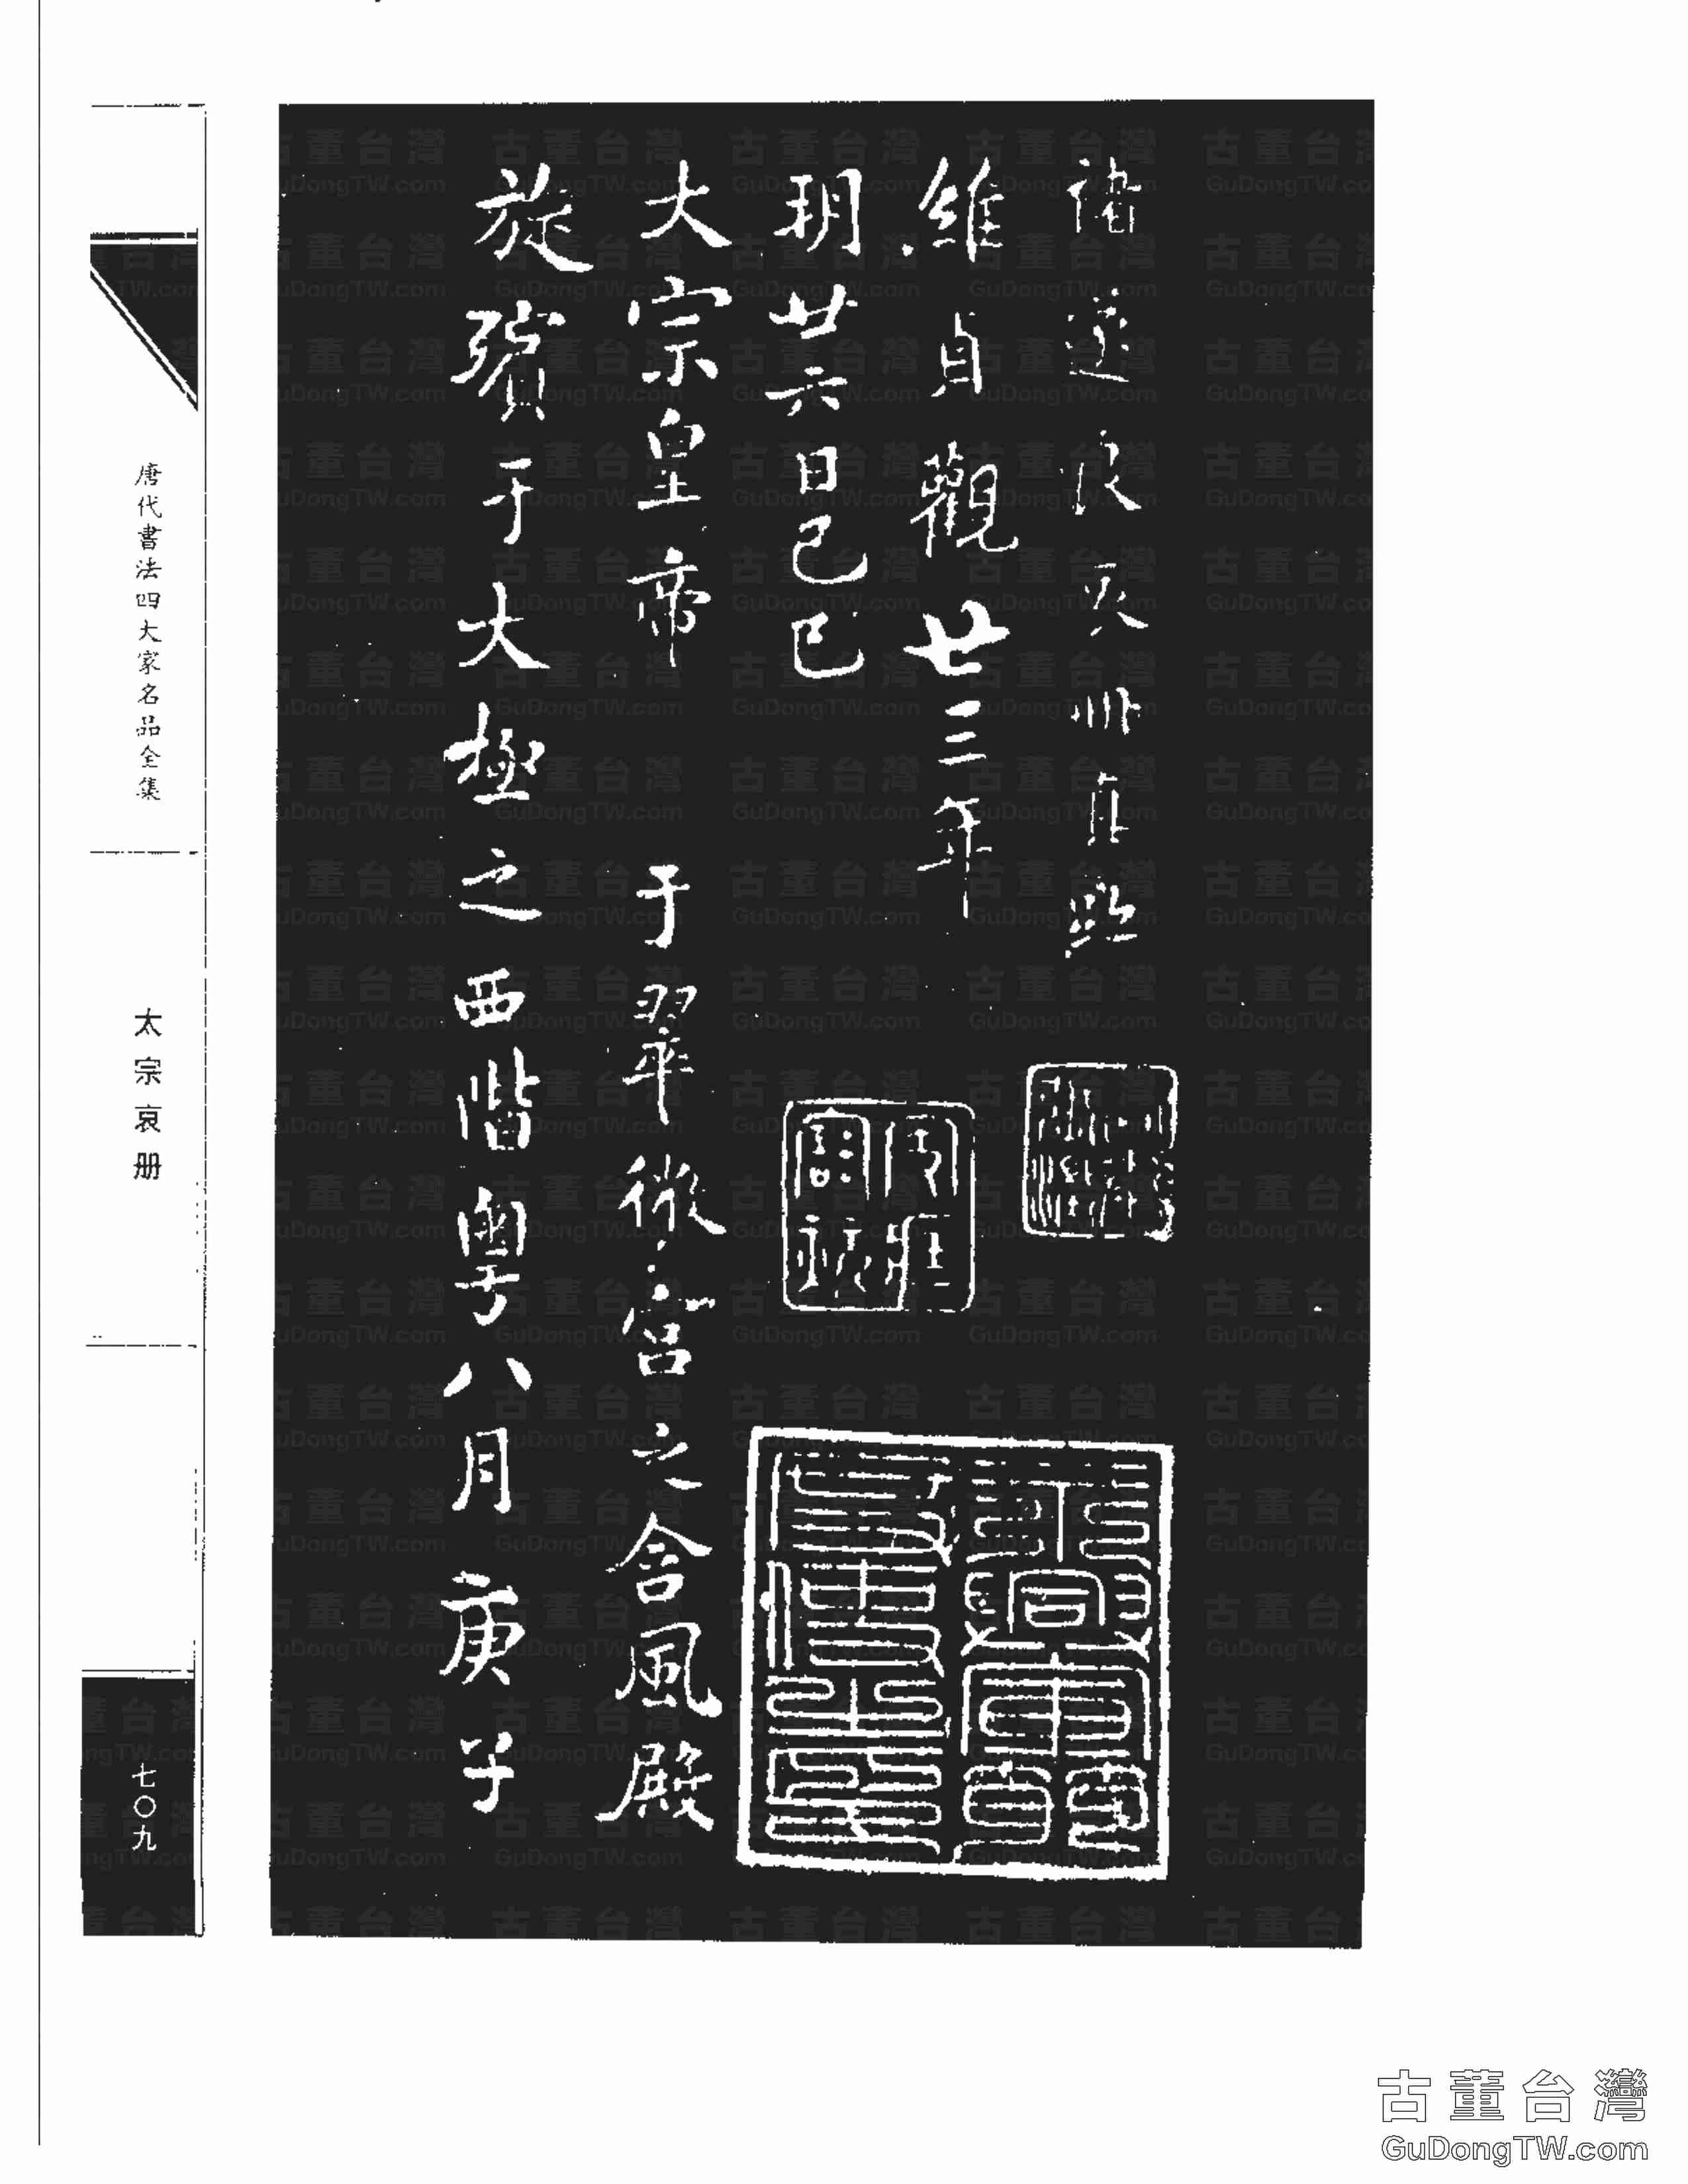 褚遂良哀冊真跡
維貞觀廿三年
玥廿六日己巳
大宗皇帝 于翠微宮之含風殿
旋殯于大極之西階粵八月庚子
唐代書法四大家名品全集
太宗哀册
七〇九
古董台灣
GuDongTW.com